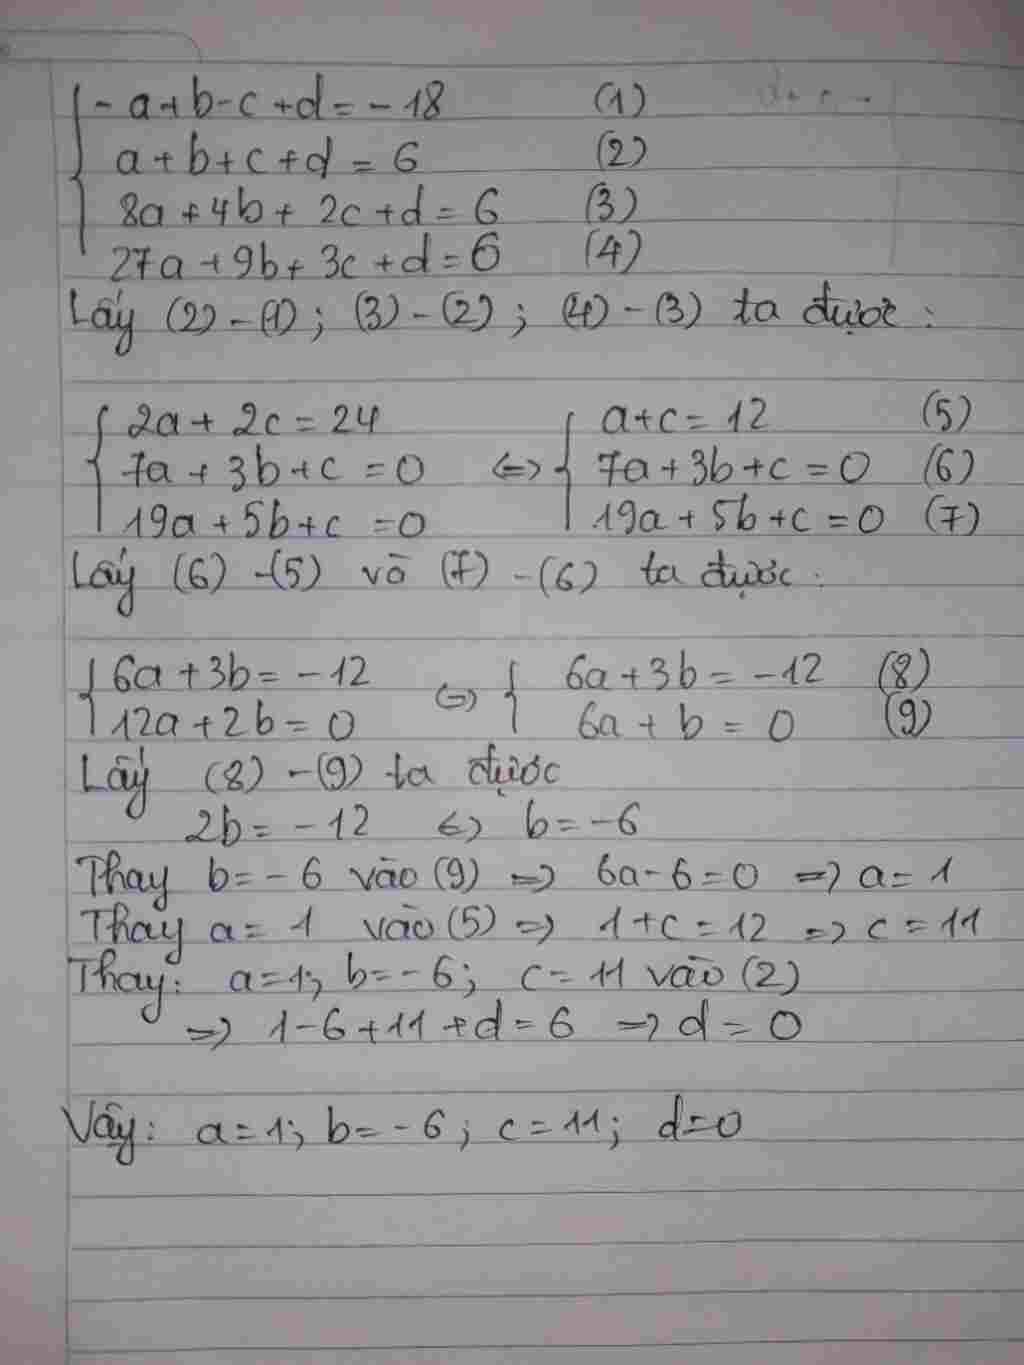 - a + b - c + d = - 18 (1)
a + b + c + d = 6 (2)
8a + 4b + 2c + d = 6 (3)
27a + 9b + 3c + d = 6 (4)
Lấy (2) - (1) ; (3) - (2) ; (4) - (3) ta được :
2a + 2c = 24 a + c = 12 (5)
7a + 3b + c = 0 <=> 7a + 3b + c = 0 (6)
19a + 5b + c = 0 19a + 5b + c = 0 (7)
Lấy (6) - (5) và (7) - (6) ta được :
6a + 3b = - 12 <=> 6a + 3b = - 12 (8)
12a + 2b = 0 6a + b = 0 (9)
Lấy (8) - (9) ta được
2b = - 12 <=> b = - 6
Thay b = - 6 vào (9) => 6a - 6 = 0 => a = 1
Thay a = 1 vào (5) => 1 + c = 12 => c = 11
Thay: a = 1; b = - 6; c = 11 vào (2)
=> 1 - 6 + 11 + d = 6 => d = 0
Vậy: a = 1; b = - 6; c = 11; d = 0